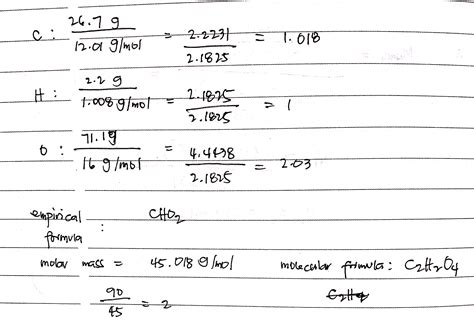 C : 26.7 g / 12.01 g/mol = 2.2231 / 2.1825 = 1.018
H : 2.2 g / 1.008 g/mol = 2.1825 / 2.1825 = 1
O : 71.1 g / 16 g/mol = 4.4438 / 2.1825 = 2.03
empirical formula : CHO₂
molar mass = 45.018 g/mol molecular formula : C₂H₂O₄
90 / 45 = 2